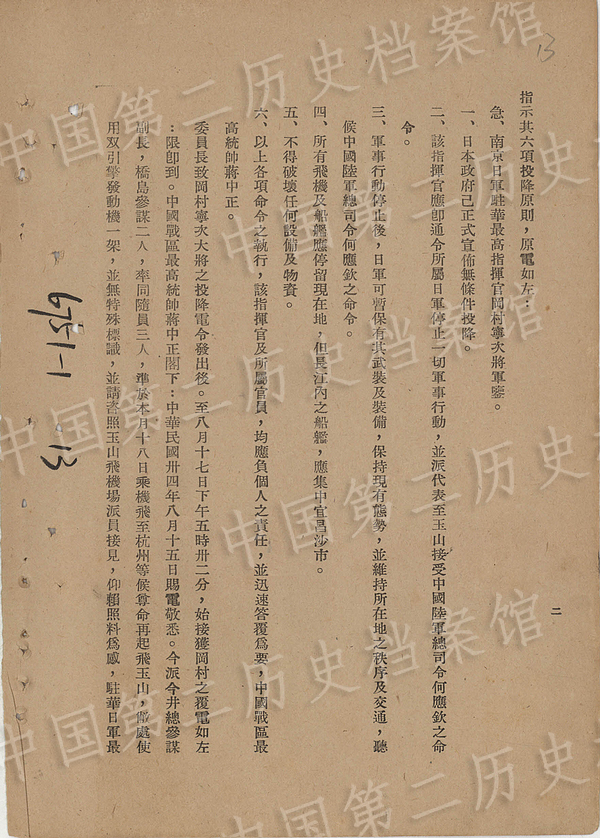 13
二
指示共六項投降原則，原電如左：
急、南京日軍駐華最高指揮官岡村寧次將軍鑒。
一、日本政府已正式宣佈無條件投降。
二、該指揮官應卽通令所屬日軍停止一切軍事行動，並派代表至玉山接受中國陸軍總司令何應欽之命
令。
三、軍事行動停止後，日軍可暫保有其武裝及裝備，保持現有態勢，並維持所在地之秩序及交通，聽
候中國陸軍總司令何應欽之命令。
四、所有飛機及船艦應停留現在地，但長江內之船艦，應集中宜昌沙市。
五、不得破壞任何設備及物資。
六、以上各項命令之執行，該指揮官及所屬官員，均應負個人之責任，並迅速答覆爲要，中國戰區最
高統帥蔣中正。
委員長致岡村寧次大將之投降電令發出後。至八月十七日下午五時卅二分，始接獲岡村之覆電如左
：限卽到。中國戰區最高統帥蔣中正閣下：中華民國卅四年八月十五日賜電敬悉。今派今井總參謀
副長，橋島參謀二人，率同隨員三人，準於本月十八日乘機飛至杭州等候尊命再起飛玉山，處使
用双引擎發動機一架，並無特殊標識，並請查照玉山飛機場派員接見，仰賴照料爲感，駐華日軍最
6751-1 13
中国第二历史档案馆
中国第二历史档案馆
中国第二历史档案馆
中国第二历史档案馆
中国第二历史档案馆
中国第二历史